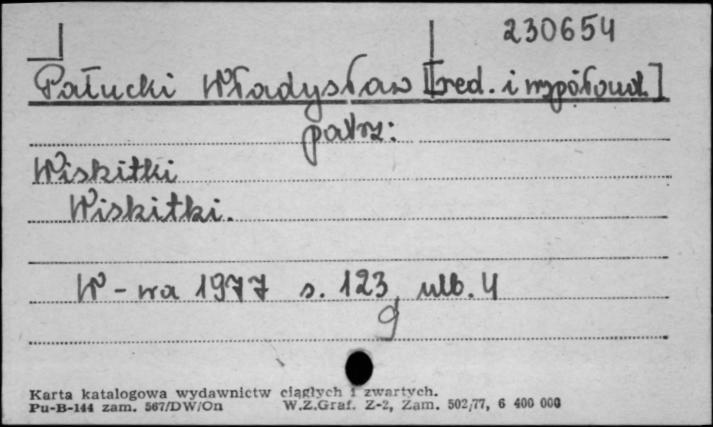 230654
Pałucki Władysław [red. i współaut.]
patrz:
Wiskitki
Wiskitki.
W-wa 1977 s. 123, ulb. 4
g
Karta katalogowa wydawnictw ciągłych i zwartych.
Pu-B-144 zam. 567/DW/On W.Z.Graf. Z-2, Zam. 502/77, 6 400 000